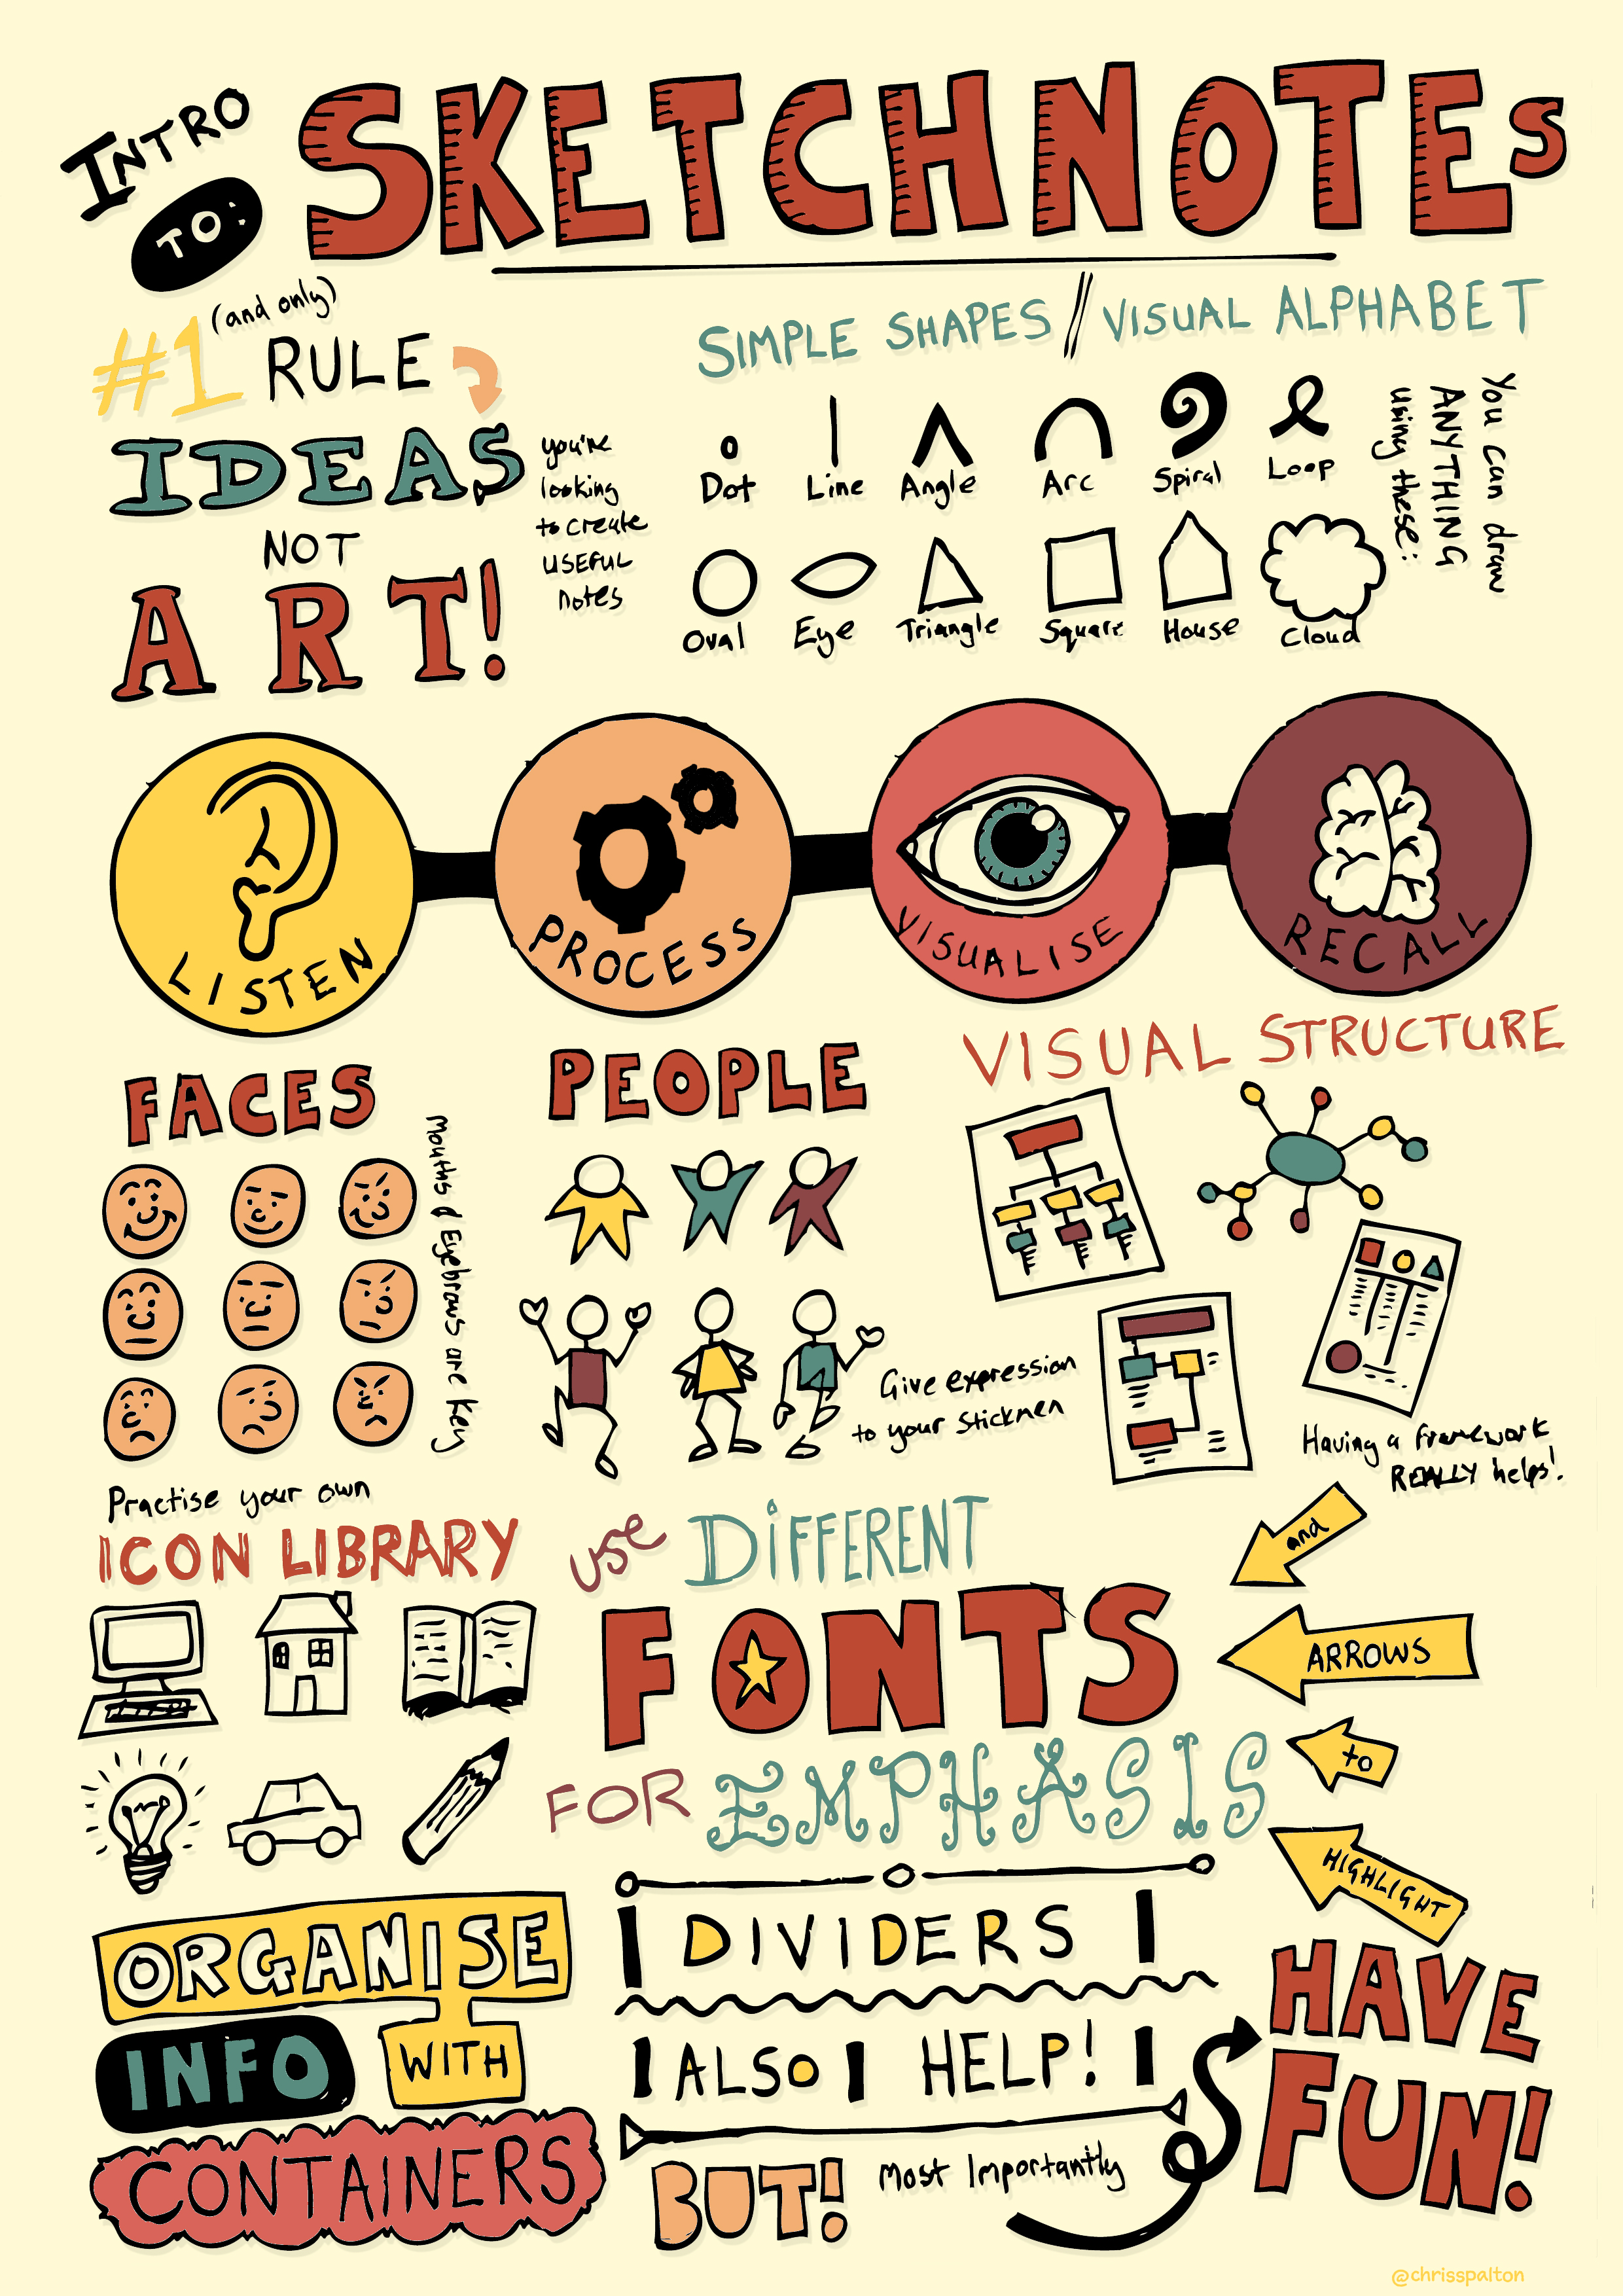 INTRO
TO:
SKETCHNOTES
#1 (and only)
RULE
IDEAS
NOT
ART!
you're
looking
to create
USEFUL
notes
SIMPLE SHAPES / VISUAL ALPHABET
Dot Line Angle Arc Spiral Loop
Oval Eye Triangle Square House Cloud
You can draw
ANYTHING
using these:
LISTEN
PROCESS
VISUALISE
RECALL
FACES
Mouths & Eyebrows are Key
PEOPLE
Give expression
to your Stickmen
VISUAL STRUCTURE
Having a framework
REALLY helps!
Practise your own
ICON LIBRARY
USE DIFFERENT
FONTS
FOR EMPHASIS
and
ARROWS
to
HIGHLIGHT
ORGANISE
INFO WITH
CONTAINERS
DIVIDERS
ALSO HELP!
BUT! Most Importantly
HAVE
FUN!
@chrisspalton